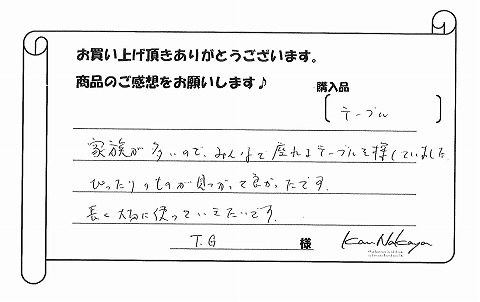 お買い上げ頂きありがとうございます。
商品のご感想をお願いします♪
購入品
[ テーブル ]
家族が多いので、みんなで座れるテーブルを探していました
ぴったりのものが見つかって良かったです。
長く大切に使っていきたいです。
T.G 様
Kan Nakaya